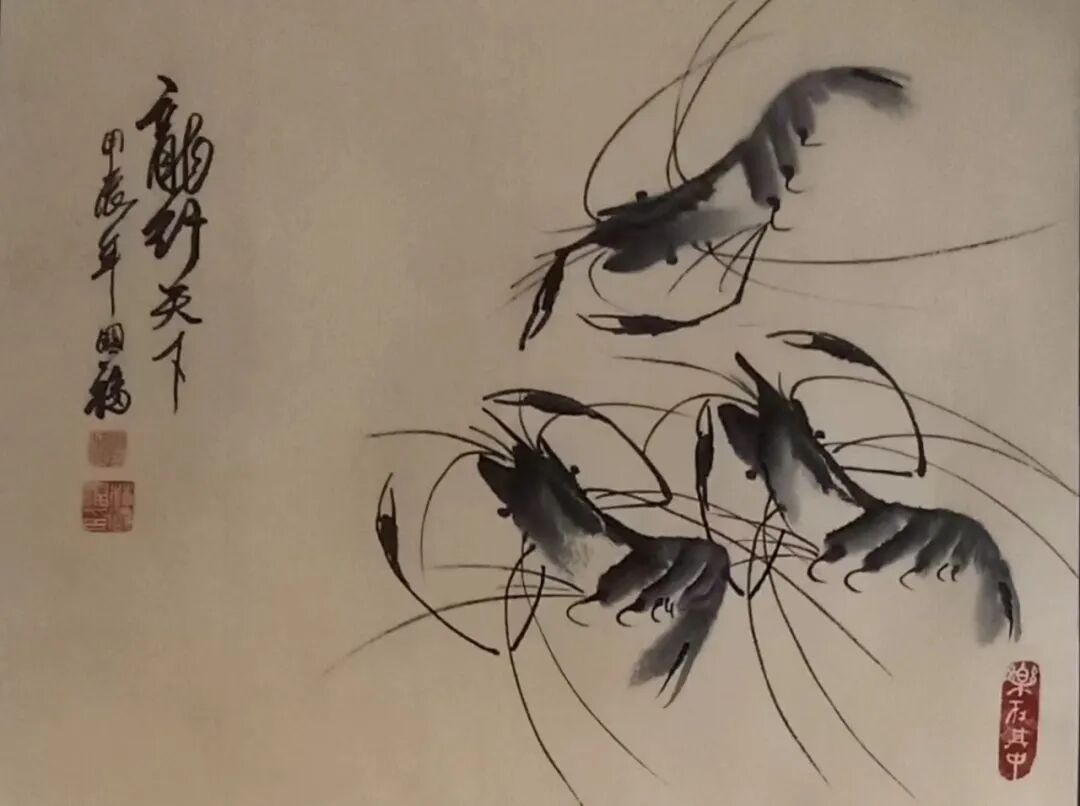 龍行天下
甲辰年國福
樂在其中